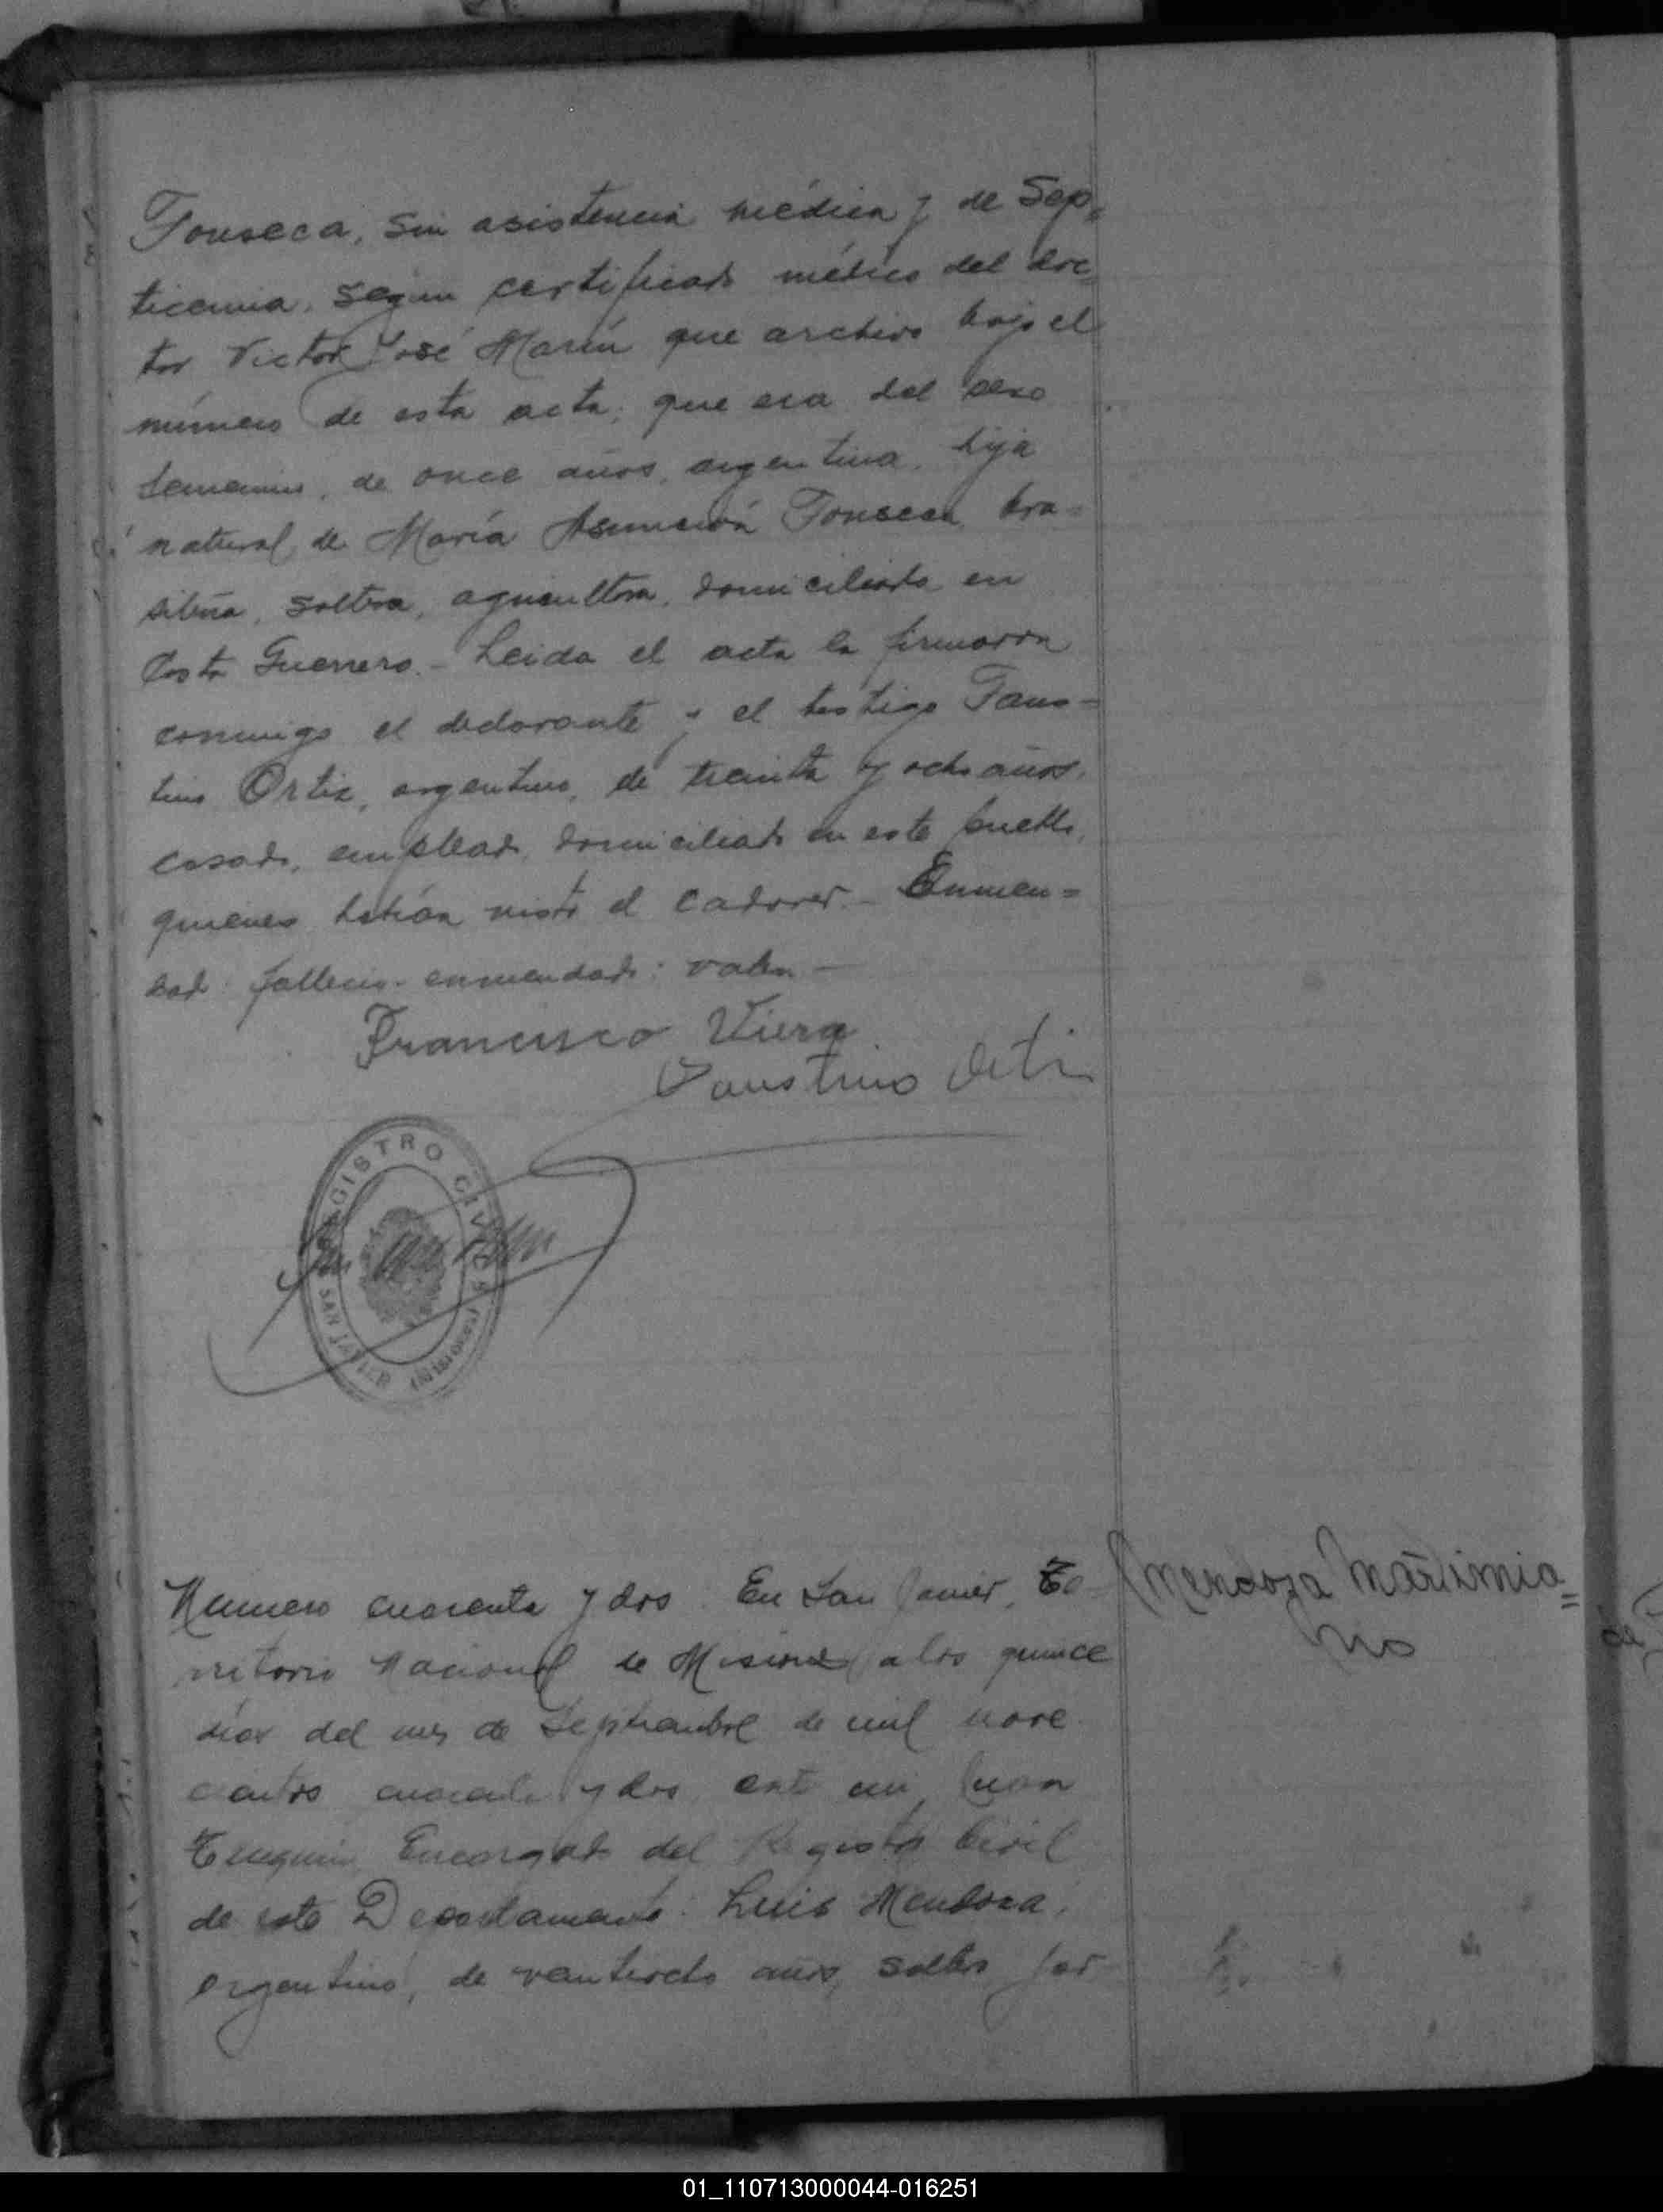 Fonseca, sin asistencia médica y de Sep=
ticemia, segun certificado médico del doc
tor Victor José Marín que archivo bajo el
número de esta acta; que era del sexo
femenino, de once años, argentina, hija
natural de María Asunción Fonseca, bra=
sileña, soltera, agricultora, domiciliada en
Costa Guerrero.- Leida el acta la firmaron
conmigo el declarante y el testigo Faus=
tino Ortiz, argentino, de treinta y ocho años,
casado, empleado, domiciliado en este pueblo,
quienes habían visto el cadaver.- Enmen=
dado: fallecio- enmendado: valen-
Francisco Viera
Faustino Orti
REGISTRO CIVIL
SAN JAVIER (MISIONES)
Numero cuarenta y dos. En San Javier, Te-
rritorio Nacional de Misiones a los quince
dias del mes de Septiembre de mil nove
cientos cuarenta y dos ante mi Juan
Encargado del Registro Civil
de este Departamento: Luis Mendoza,
argentino, de veintiocho años, soltero jor
Mendoza Maximia=
no
01_110713000044-016251